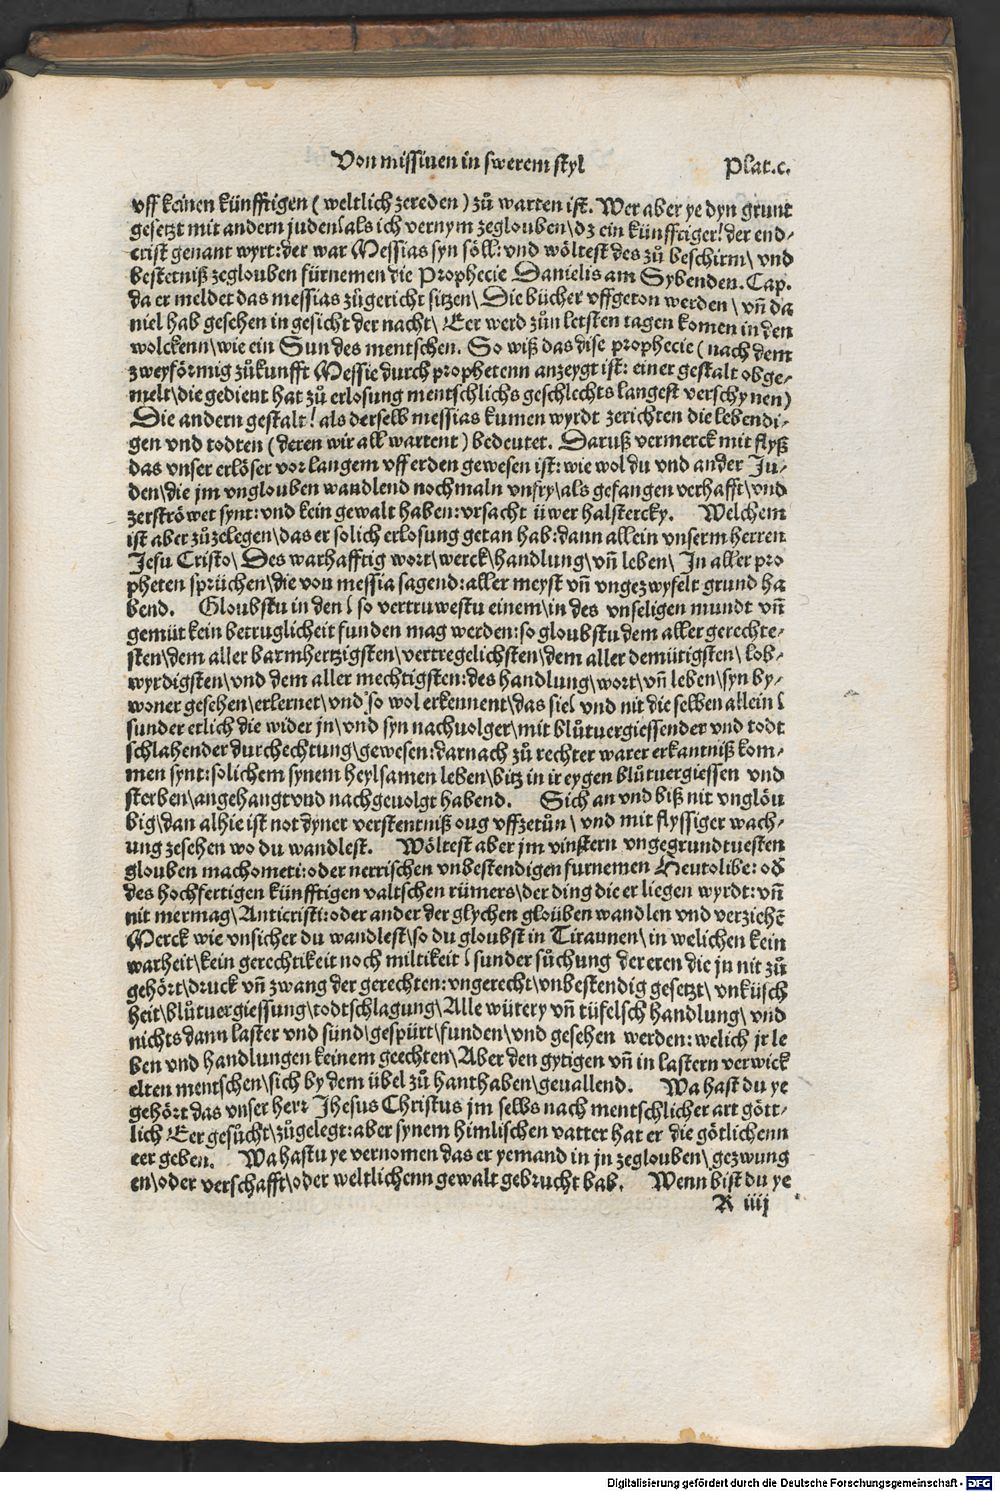 Von missiuen in swerem styl Plat.c.
vff keinen künfftigen ( weltlich zereden ) zů warten ist. Wer aber ye dyn grunt
gesetzt mit andern juden⌠als ich vernym zeglouben\dz ein künfftiger! der end⸗
crist genant wyrt:der war Messias syn söll: vnd wöltest des zů beschirm\ vnd
bestetniß zeglouben fürnemen die Prophecie Danielis am Sybenden. Cap.
da er meldet das messias zůgericht sitzen\ Die bücher vffgeton werden \ vn̄ da
niel hab gesehen in gesicht der nacht\ Eer werd zůn letsten tagen komen in den
wolckenn\wie ein Sun des mentschen. So wiß das dise prophecie ( nach dem
zweyförmig zůkunfft Messie durch prophetenn anzeygt ist: einer gestalt obge⸗
melt\die gedient hat zů erlosung mentschlichs geschlechts langest verschynen)
Die andern gestalt! als derselb messias kumen wyrdt zerichten die lebendi⸗
gen vnd todten (deren wir all wartent ) bedeutet. Daruß vermerck mit flyß
das vnser erlöser vor langem vff erden gewesen ist: wie wol du vnd ander Ju⸗
den\die jm vnglouben wandlend nochmaln vnfry\als gefangen verhafft\vnd
zerströwet synt: vnd kein gewalt haben: vrsacht üwer halstercky. Welchem
ist aber zůzelegen\das er solich erlosung getan hab: dann allein vnserm herren
Jesu Cristo\ Des warhafftig wort\werck\handlung\vn̄ leben\ In aller pro
pheten sprüchen\die von messia sagend: aller meyst vn̄ vngezwyfelt grund ha
bend. Gloubstu in den⌠so vertruwestu einem\in des vnseligen mundt vn̄
gemüt kein betruglicheit funden mag werden: so gloubstu dem aller gerechte⸗
sten\dem aller barmhertzigsten\vertregelichsten\dem aller demütigsten\ lob⸗
wyrdigsten\vnd dem aller mechtigsten: des handlung\wort\vn̄ leben\syn by⸗
woner gesehen\erlernet\vnd so wol erkennent\das sie⌠vnd nit die selben allein⌠
sunder etlich die wider jn\vnd syn nachuolger\mit blůtuergiessender vnd todt
schlahender durchechtung\gewesen: darnach zů rechter warer erkantniß kom⸗
men synt: solichem synem heylsamen leben\bitz in ir eygen blůtuergiessen vnd
sterben\angehangt vnd nachgeuolgt habend. Sich an vnd biß nit vnglöu
big\dan alhie ist not dyner verstentniß oug vffzetůn \ vnd mit flyssiger wach⸗
ung zesehen wo du wandlest. Wöltest aber jm vinstern vngegrundtuesten
glouben machometi: oder nerrischen vnbestendigen furnemen Neutolibe: od̄
des hochfertigen künfftigen valtschen rümers\der ding die er liegen wyrdt: vn̄
nit mermag\Anticristi: oder ander der glychen gloüben wandlen vnd verzichē
Merck wie vnsicher du wandlest\so du gloubst in Tiraunen\in welichen kein
warheit\kein gerechtikeit noch miltikeit⌠sunder sůchung der eren die jn nit zů
gehört\druck vn̄ zwang der gerechten: vngerecht\vnbestendig gesetzt\ vnküsch
heit\blůtuergiessung\todtschlagung\Alle wütery vn̄ tüfelsch handlung\ vnd
nichts dann laster vnd sünd\gespürt\funden\vnd gesehen werden: welich jr le
ben vnd handlungen keinem geechten\Aber den gytigen vn̄ in lastern verwick
elten mentschen\sich by dem übel zů hanthaben\geuallend. Wa hast du ye
gehört das vnser herr Jhesus Christus jm selbs nach mentschlicher art gött⸗
lich Eer gesůcht\zůgelegt: aber synem himlischen vatter hat er die götlichenn
eer geben. Wa hastu ye vernomen das er yemand in jn zeglouben\ gezwung
en\oder verschafft\oder weltlichenn gewalt gebrucht hab. Wenn bist du ye
R iiij
Digitalisierung gefördert durch die Deutsche Forschungsgemeinschaft - DFG